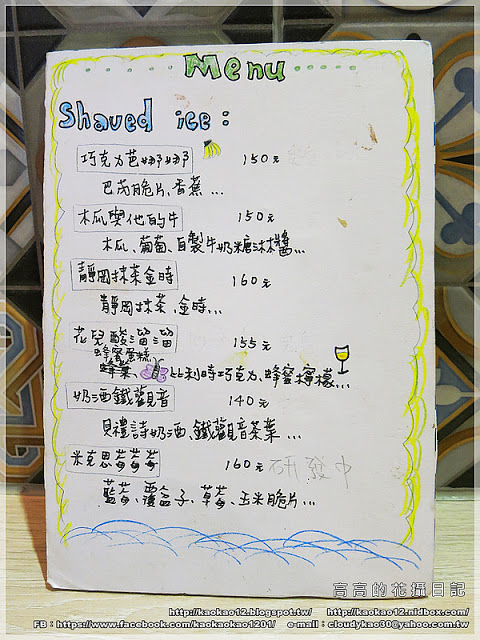 Menu
Shaved ice:
巧克力芭娜娜 150元
巴芮脆片、香蕉...
木瓜與他的牛 150元
木瓜、葡萄、自製牛奶糖沫醬...
靜岡抹茶金時 160元
靜岡抹茶、金時...
花兒酸溜溜 155元
蜂蜜蛋糕
蜂巢、比利時巧克力、蜂蜜檸檬...
奶酒鐵觀音 140元
貝禮詩奶酒、鐵觀音茶葉...
米克思莓莓莓 160元 研發中
藍莓、覆盆子、草莓、玉米脆片...
高高的花攝日記
http://kaokao12.blogspot.tw/ http://kaokao12.nidbox.com/
FB：https://www.facebook.com/kaokaokao1201/ e-mail：cloudykao30@yahoo.com.tw